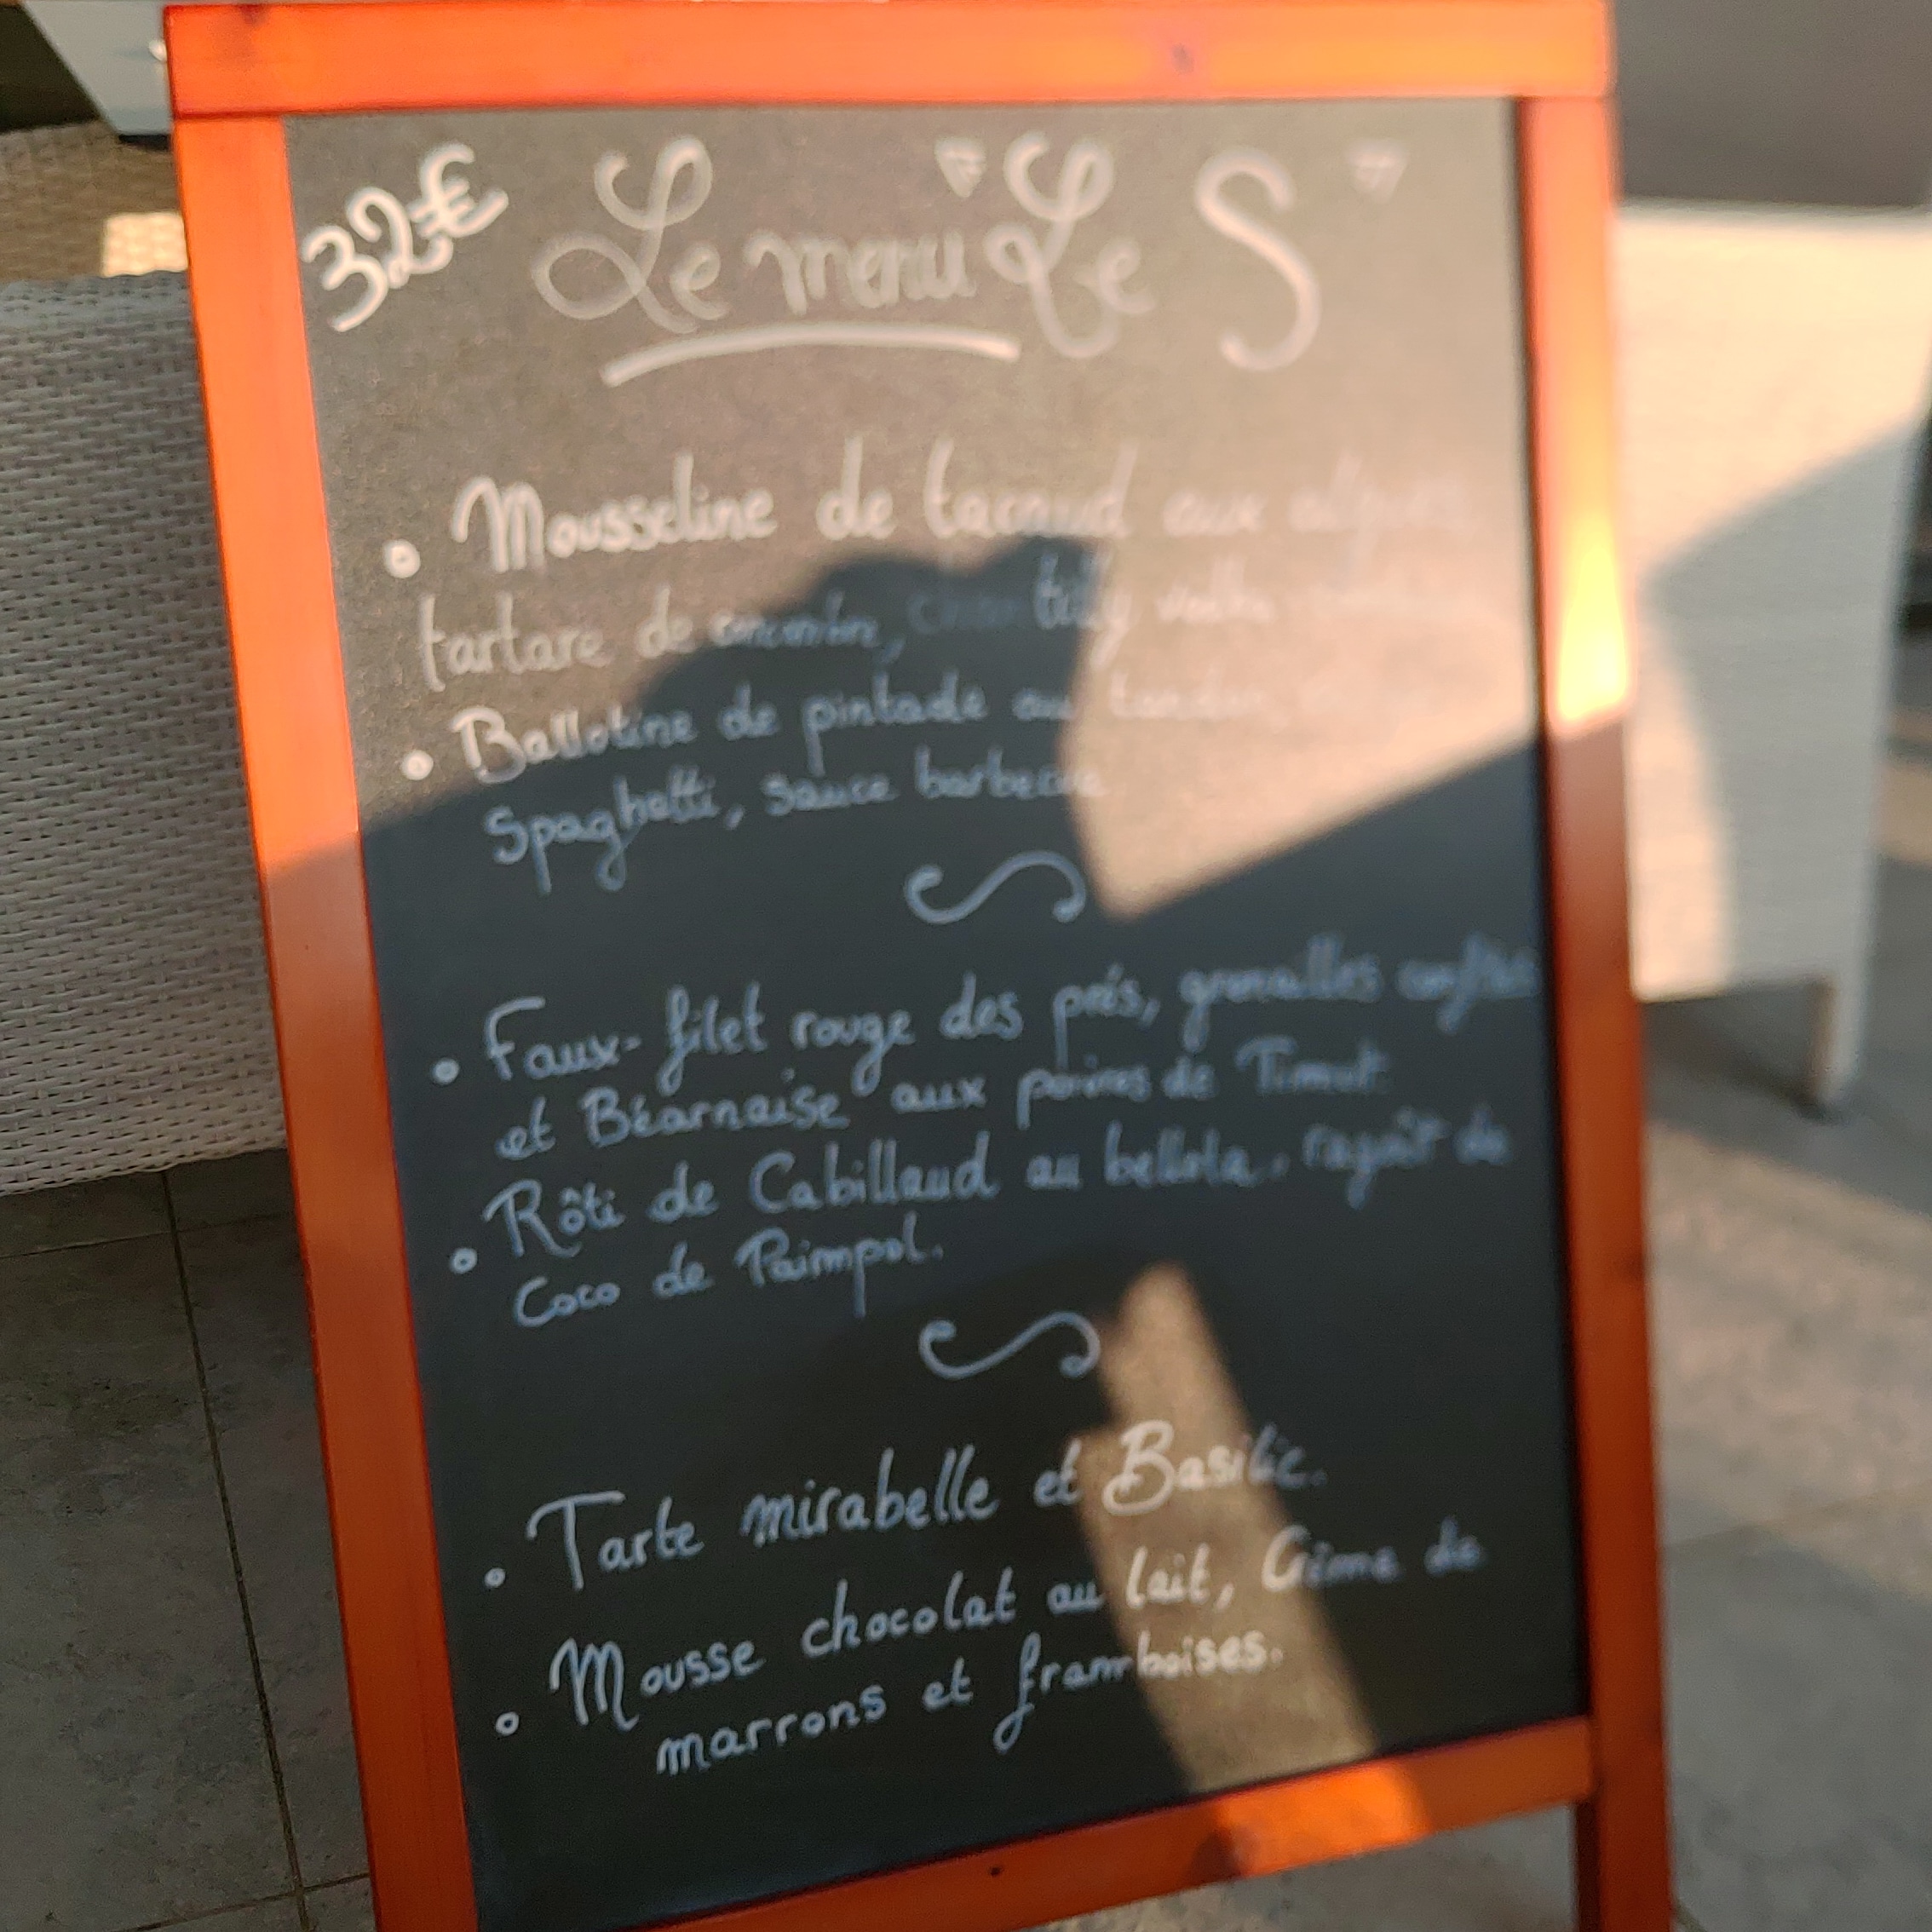 32€ Le menu "Le S"
• Mousseline de tacaud aux algues,
tartare de concombre, chantilly
• Ballotine de pintade au
Spaghetti, sauce barbecue
• Faux-filet rouge des prés, grenailles confites
et Béarnaise aux poivres de Timut
• Rôti de Cabillaud au bellota, ragoût de
Coco de Paimpol.
• Tarte mirabelle et Basilic.
• Mousse chocolat au lait, Crème de
marrons et framboises.